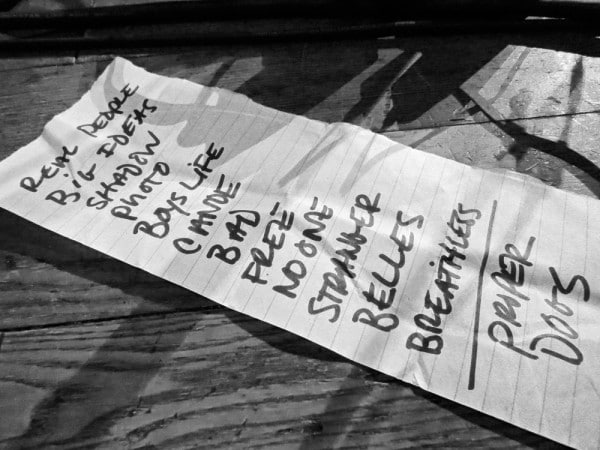 REAL PEOPLE
BIG IDEAS
SHADOW
PHOTO
BOYS LIFE
CANOE
BAD
FREE
NO ONE
STRANGER
BELLES
BREATHLESS
DOGS